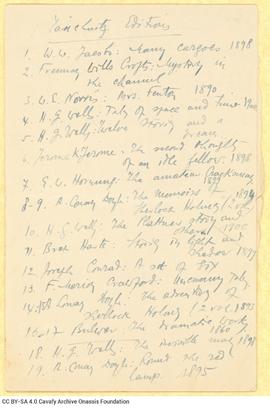 Tauchnitz Editions
1. W. W. Jacobs: Many cargoes 1898
2. Freeman Wills Crofts: Mystery in
the channel
3. W. E. Norris: Mrs. Fenton 1890
4. H. G. Wells: Tales of space and time 1900
5. H. G. Wells: Twelve Stories and a
Dream
6. Jerome K Jerome: The second thoughts
of an idle fellow: 1898
7. E. W. Hornung: The amateur cracksman
1899
8-9. A. Conan Doyle: The Memoirs of 1894
Sherlock Holmes (2 vol.
10. H. G. Wells: The Plattner story and
others 1900
11. Bret Harte: Stories in light and
shadow 1899
12. Joseph Conrad: A set of Six
13. F. Marion Crawford: Uncanny Tales
14-15 A Conan Doyle: The adventures of
Sherlock Holmes (2 vol. 1893
16-17 Bulwer: The dramatic works
1860
18. H. G. Wells: The invisible man 1898
19. A. Conan Doyle: Round the red
lamp. 1895
CC BY-SA 4.0 Cavafy Archive Onassis Foundation